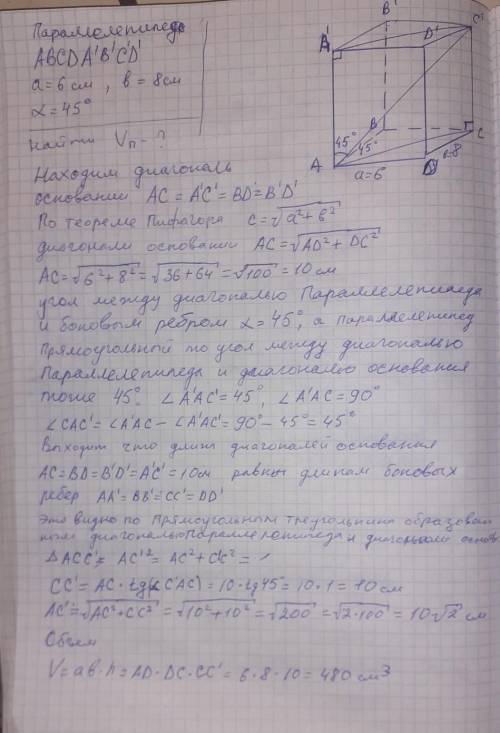 Параллелепипед
ABCDA'B'C'D'
a=6 см, b=8см
α=45°
Найти Vп-?
B'
C'
A'
D'
45°
B
45°
C
A
a=6
D
b=8
Находим диагональ
основании AC=A'C'=BD=B'D'
По теореме Пифагора c=√a²+b²
диагонали основании AC=√AD²+DC²
AC=√6²+8²=√36+64=√100=10 см
угол между диагональю Параллелепипеда
и боковым ребром α=45°, а параллелепипед
Прямоугольный то угол между диагональю
Параллелепипеда и диагональю основания
тоже 45°. ∠A'AC'=45°, ∠A'AC=90°
∠CAC'=∠A'AC-∠A'AC'=90°-45°=45°
Выходит что длины диагоналей основания
AC=BD=B'D'=A'C'=10см равны длинам боковых
ребер AA'=BB'=CC'=DD'
Это видно по прямоугольным треугольника образован
ным диагональю Параллелепипеда и диагональю основ
ΔACC'= AC'²=AC²+CC'²=
CC'=AC·tg(∠C'AC)=10·tg45°=10·1=10 см
AC'=√AC²+CC'²=√10²+10²=√200=√2·100=10√2 см
Объем
V=ab·h=AD·DC·CC'=6·8·10=480 см³